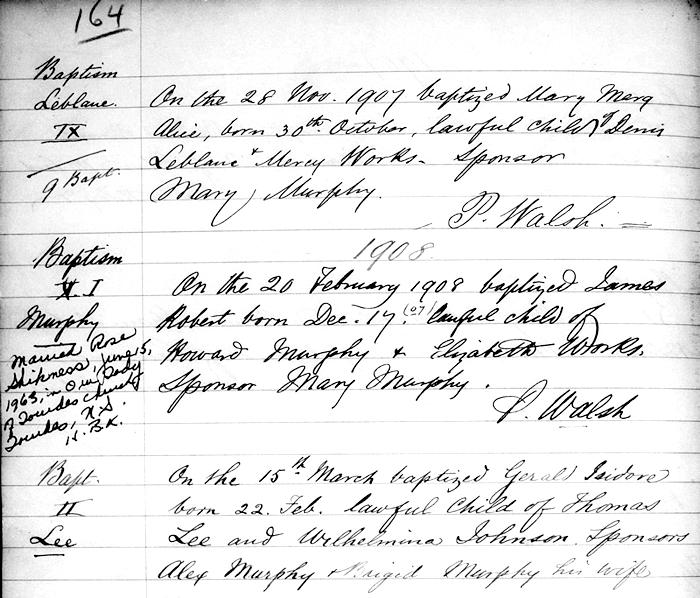 164
Baptism
Leblanc.
IX
9 Bapt.
On the 28 Nov. 1907 baptized Mary Marg
Alice, born 30th October, lawful child of Denis
Leblanc & Mercy Works - Sponsor
Mary Murphy.
P. Walsh.
1908.
Baptism
I
Murphy
Married Rose
June 5,
1963, in Our Lady
of Lourdes Church
Lourdes, N.S.
On the 20 February 1908 baptized James
Robert born Dec. 17. (07) lawful child of
Howard Murphy & Elizabeth Works.
Sponsor Mary Murphy.
P. Walsh
Bapt.
II
Lee
On the 15th March baptized Gerald Isidore
born 22. Feb. lawful Child of Thomas
Lee and Wilhelmina Johnson. Sponsors
Alex Murphy & Brigid Murphy his wife